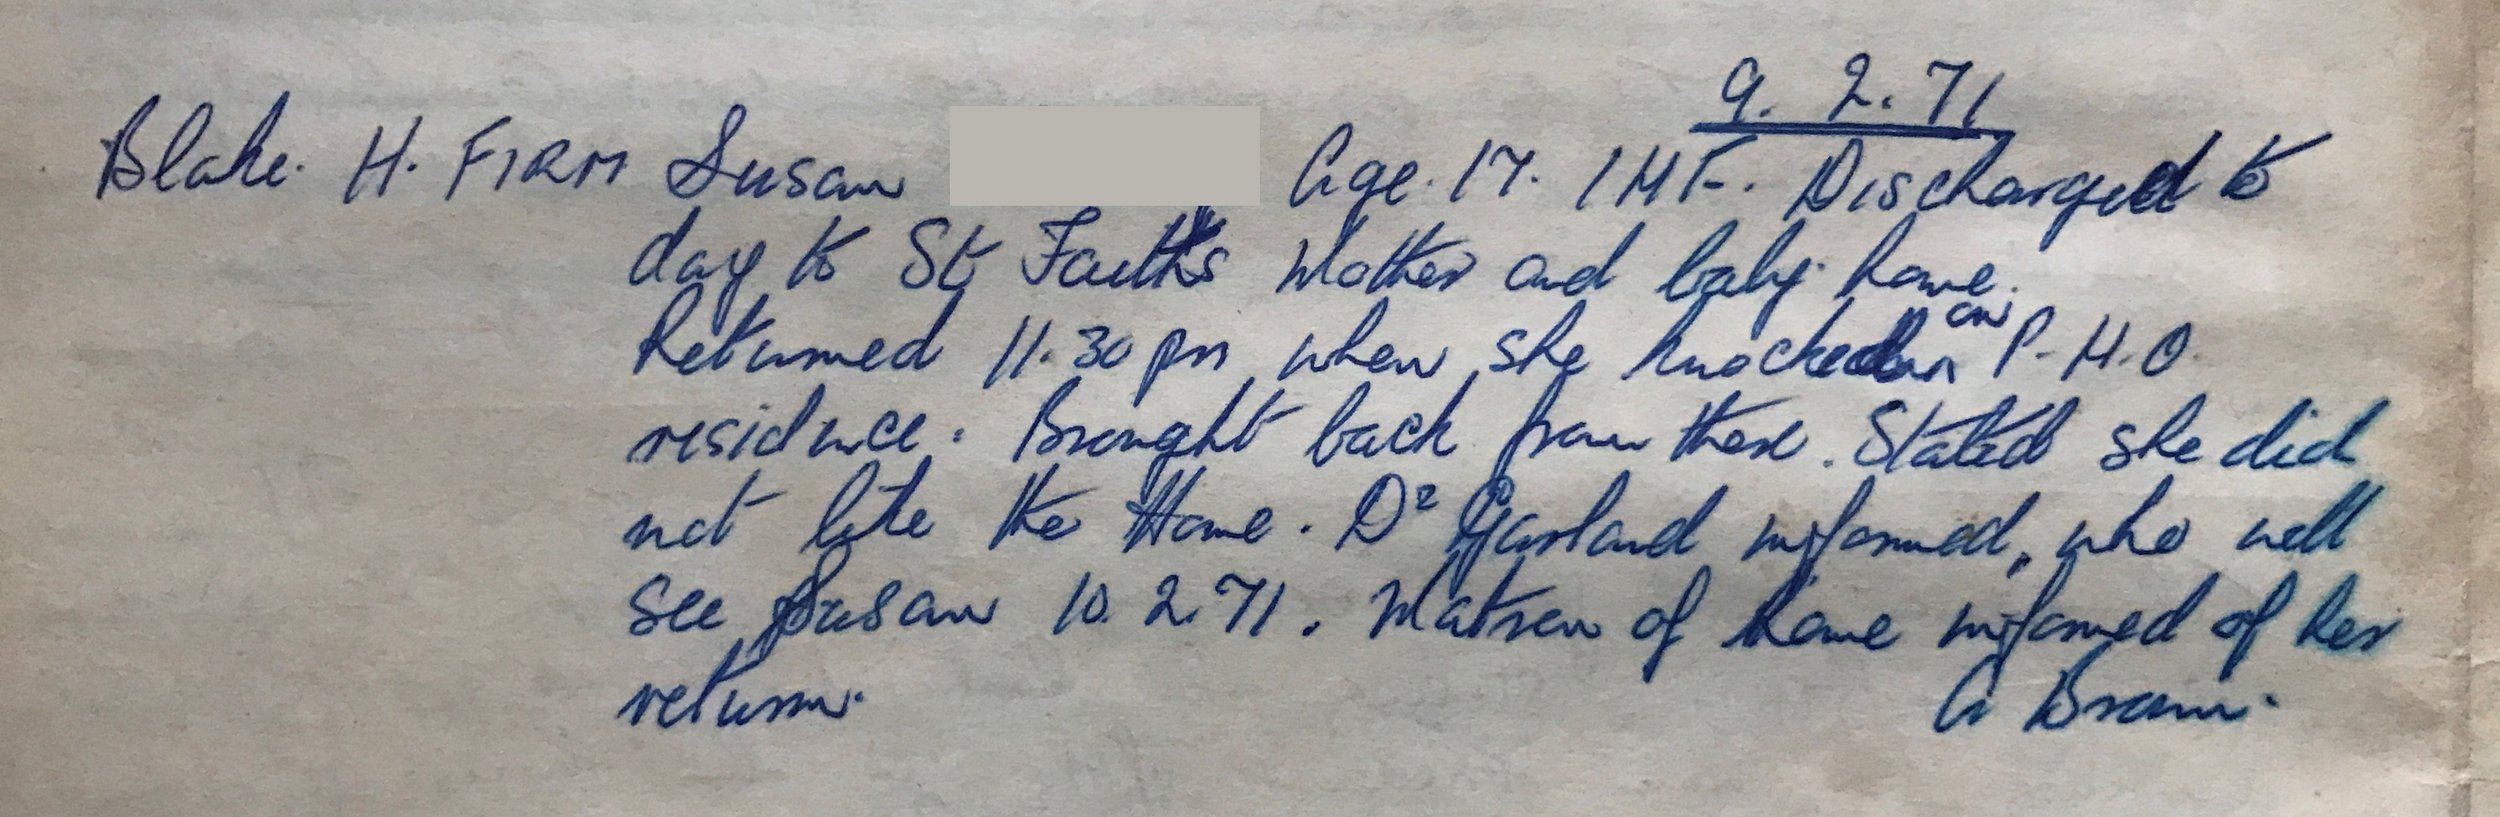 9. 2. 71
Blake. H. FIRM Susan Age. 17. IMF. Discharged to
day to St Faith's Mother and baby home.
Returned 11.30 pm when she knocked on P.M.O.
residence. Brought back from there. Stated she did
not like the Home. Dr Garland informed, who will
see Susan 10. 2. 71. Matron of home informed of her
return.
A Brown.